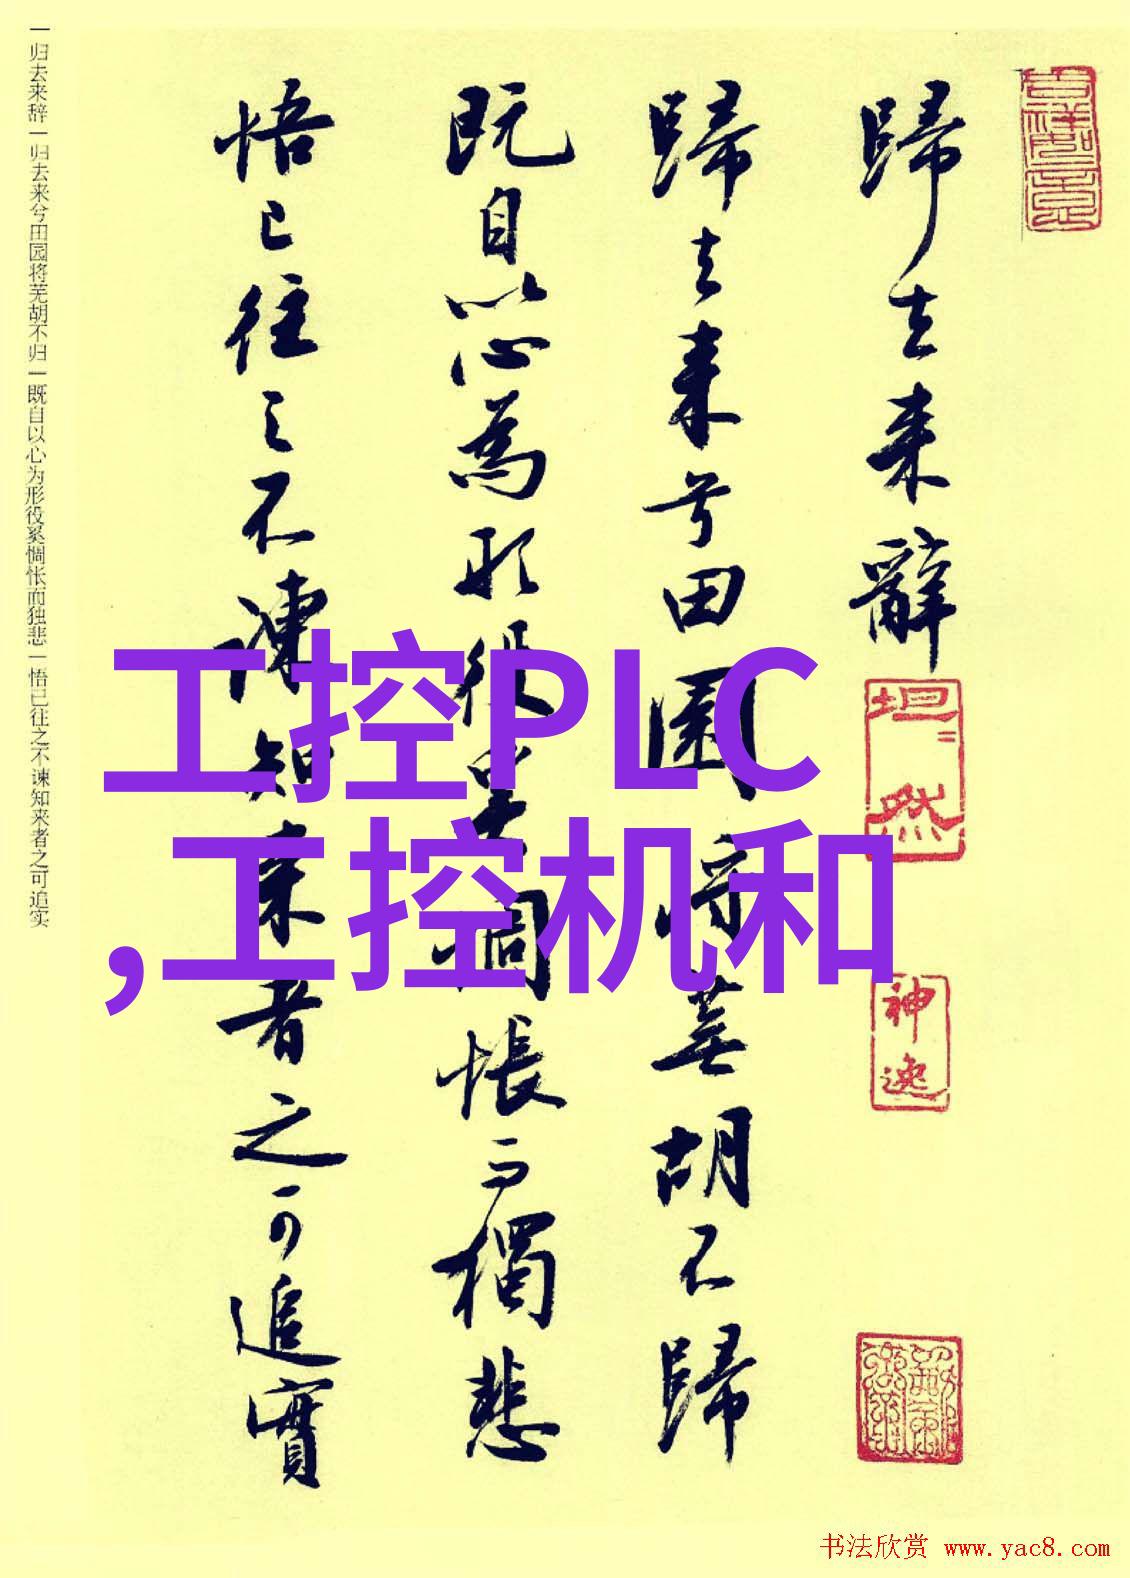 一归去来辞一归去来兮田园将芜胡不归一既自以心为形役奚惆怅而独悲一悟已往之不谏知来者之可追实
歸去来辭
歸去来兮田園将蕪胡不歸
既自以心為形役奚惆悵而獨悲
悟已往之不諫知来者之可追實
坦然
神逸
工控PLC
,工控机和
书法欣赏 www.yac8.com